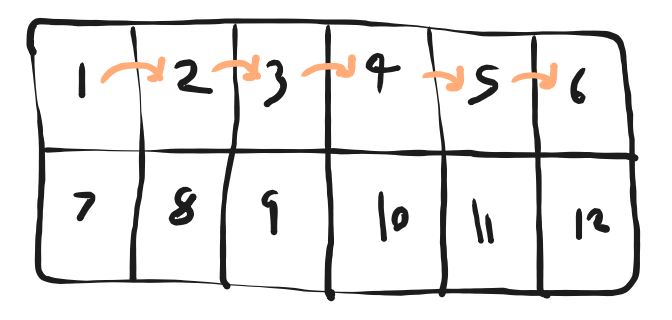 1 2 3 4 5 6
7 8 9 10 11 12